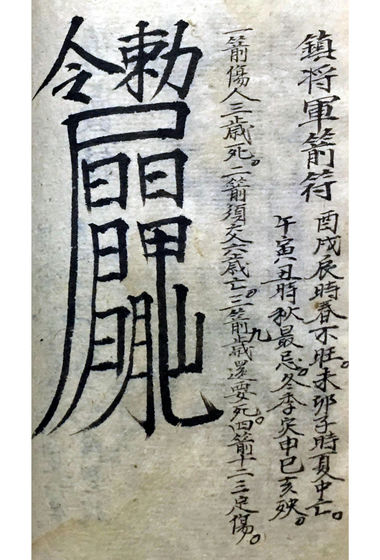 鎮将軍箭符
酉戌辰時春不旺。未卯子時夏中亡。
午寅丑時秋最忌。冬季定申巳亥殃。
一箭傷人三歲死。二箭須交六歲亡。三箭九歲還要死四箭十二三定傷。
勅令